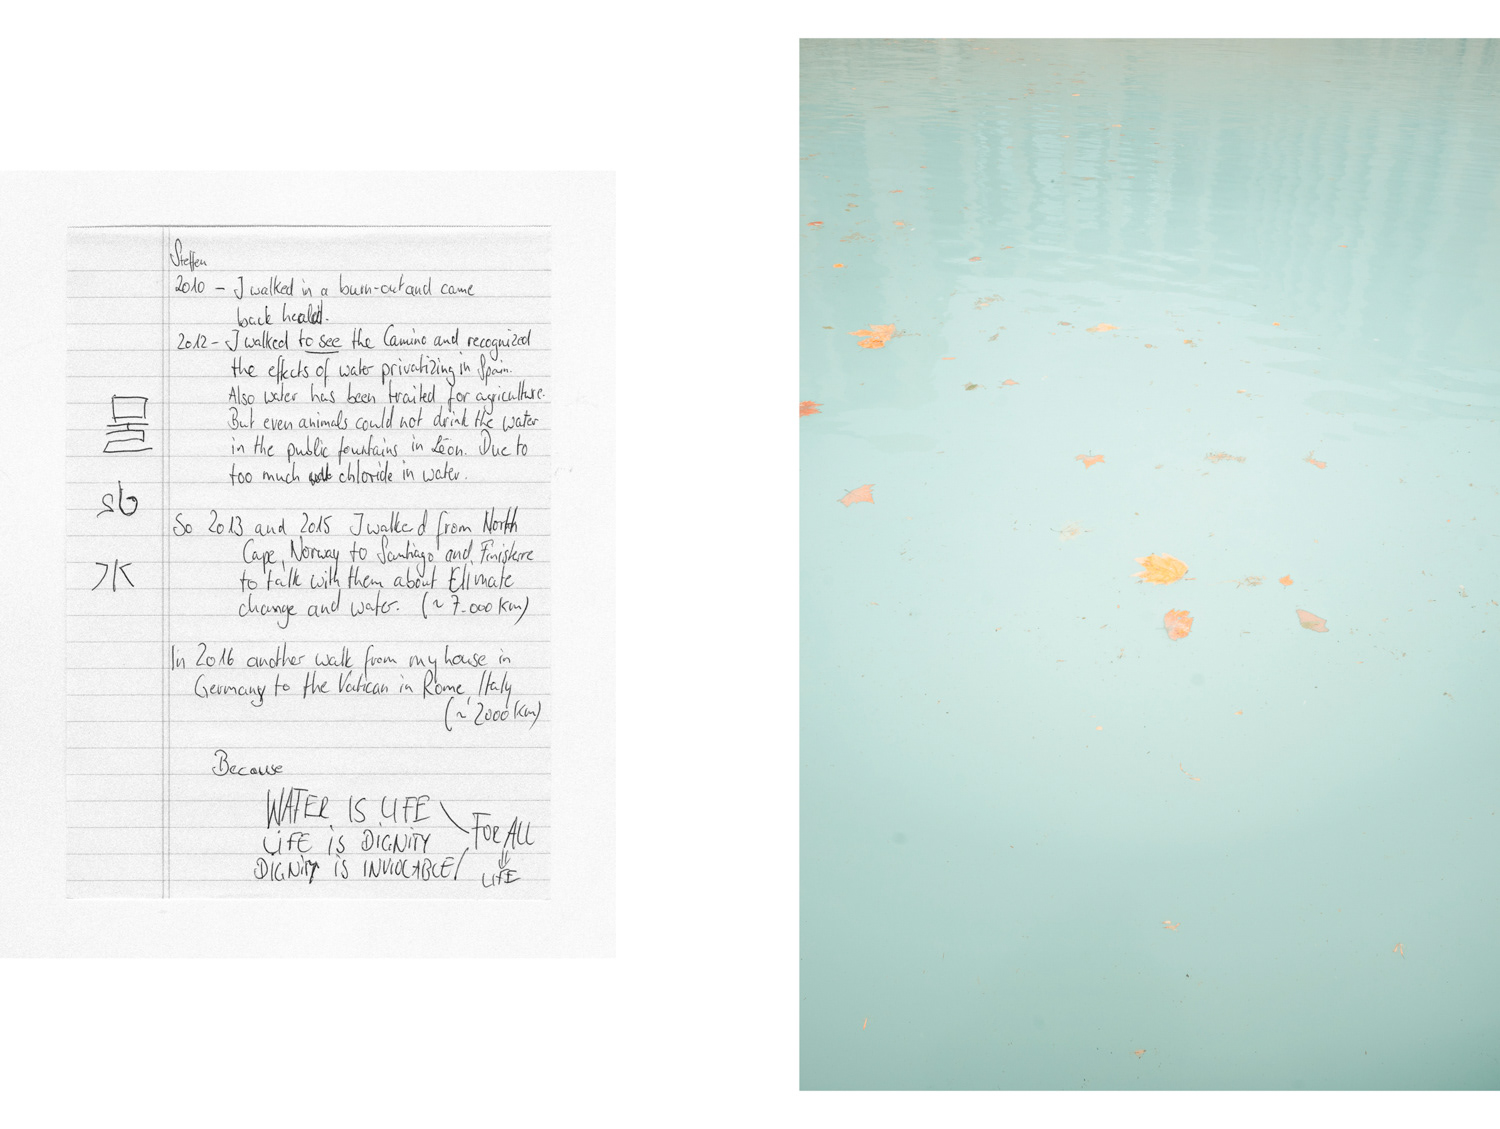 Steffen
2010 - I walked in a burn-out and came
back healed.
2012 - I walked to see the Camino and recognized
the effects of water privatizing in Spain.
Also water has been traited for agriculture.
But even animals could not drink the water
in the public fountains in Léon. Due to
too much chloride in water.
물
sb
水
So 2013 and 2015 I walked from North
Cape, Norway to Santiago and Finisterre
to talk with them about Climate
change and water. (~ 7.000 km)
In 2016 another walk from my house in
Germany to the Vatican in Rome, Italy
(~ 2000 km)
Because
WATER IS LIFE
LIFE IS DIGNITY
DIGNITY IS INVIOLABLE
FOR ALL
LIFE